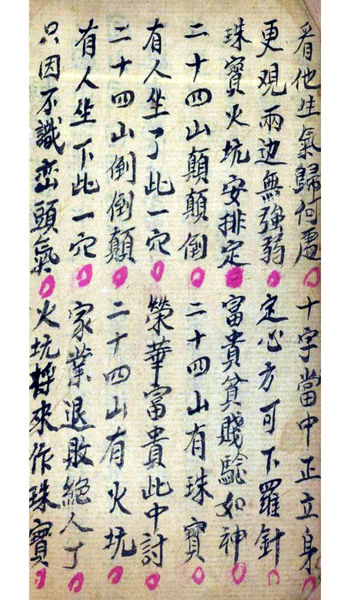 看他生氣歸何處 十字當中正立身
更观兩边無強弱 定心方可下羅針
珠寶火坑安排定 富貴貧賤驗如神
二十四山顛顛倒 二十四山有珠寶
有人坐了此一穴 榮華富貴此中討
二十四山倒倒顛 二十四山有火坑
有人坐下此一穴 家業退敗絕人丁
只因不識巒頭氣 火坑將來作珠寶